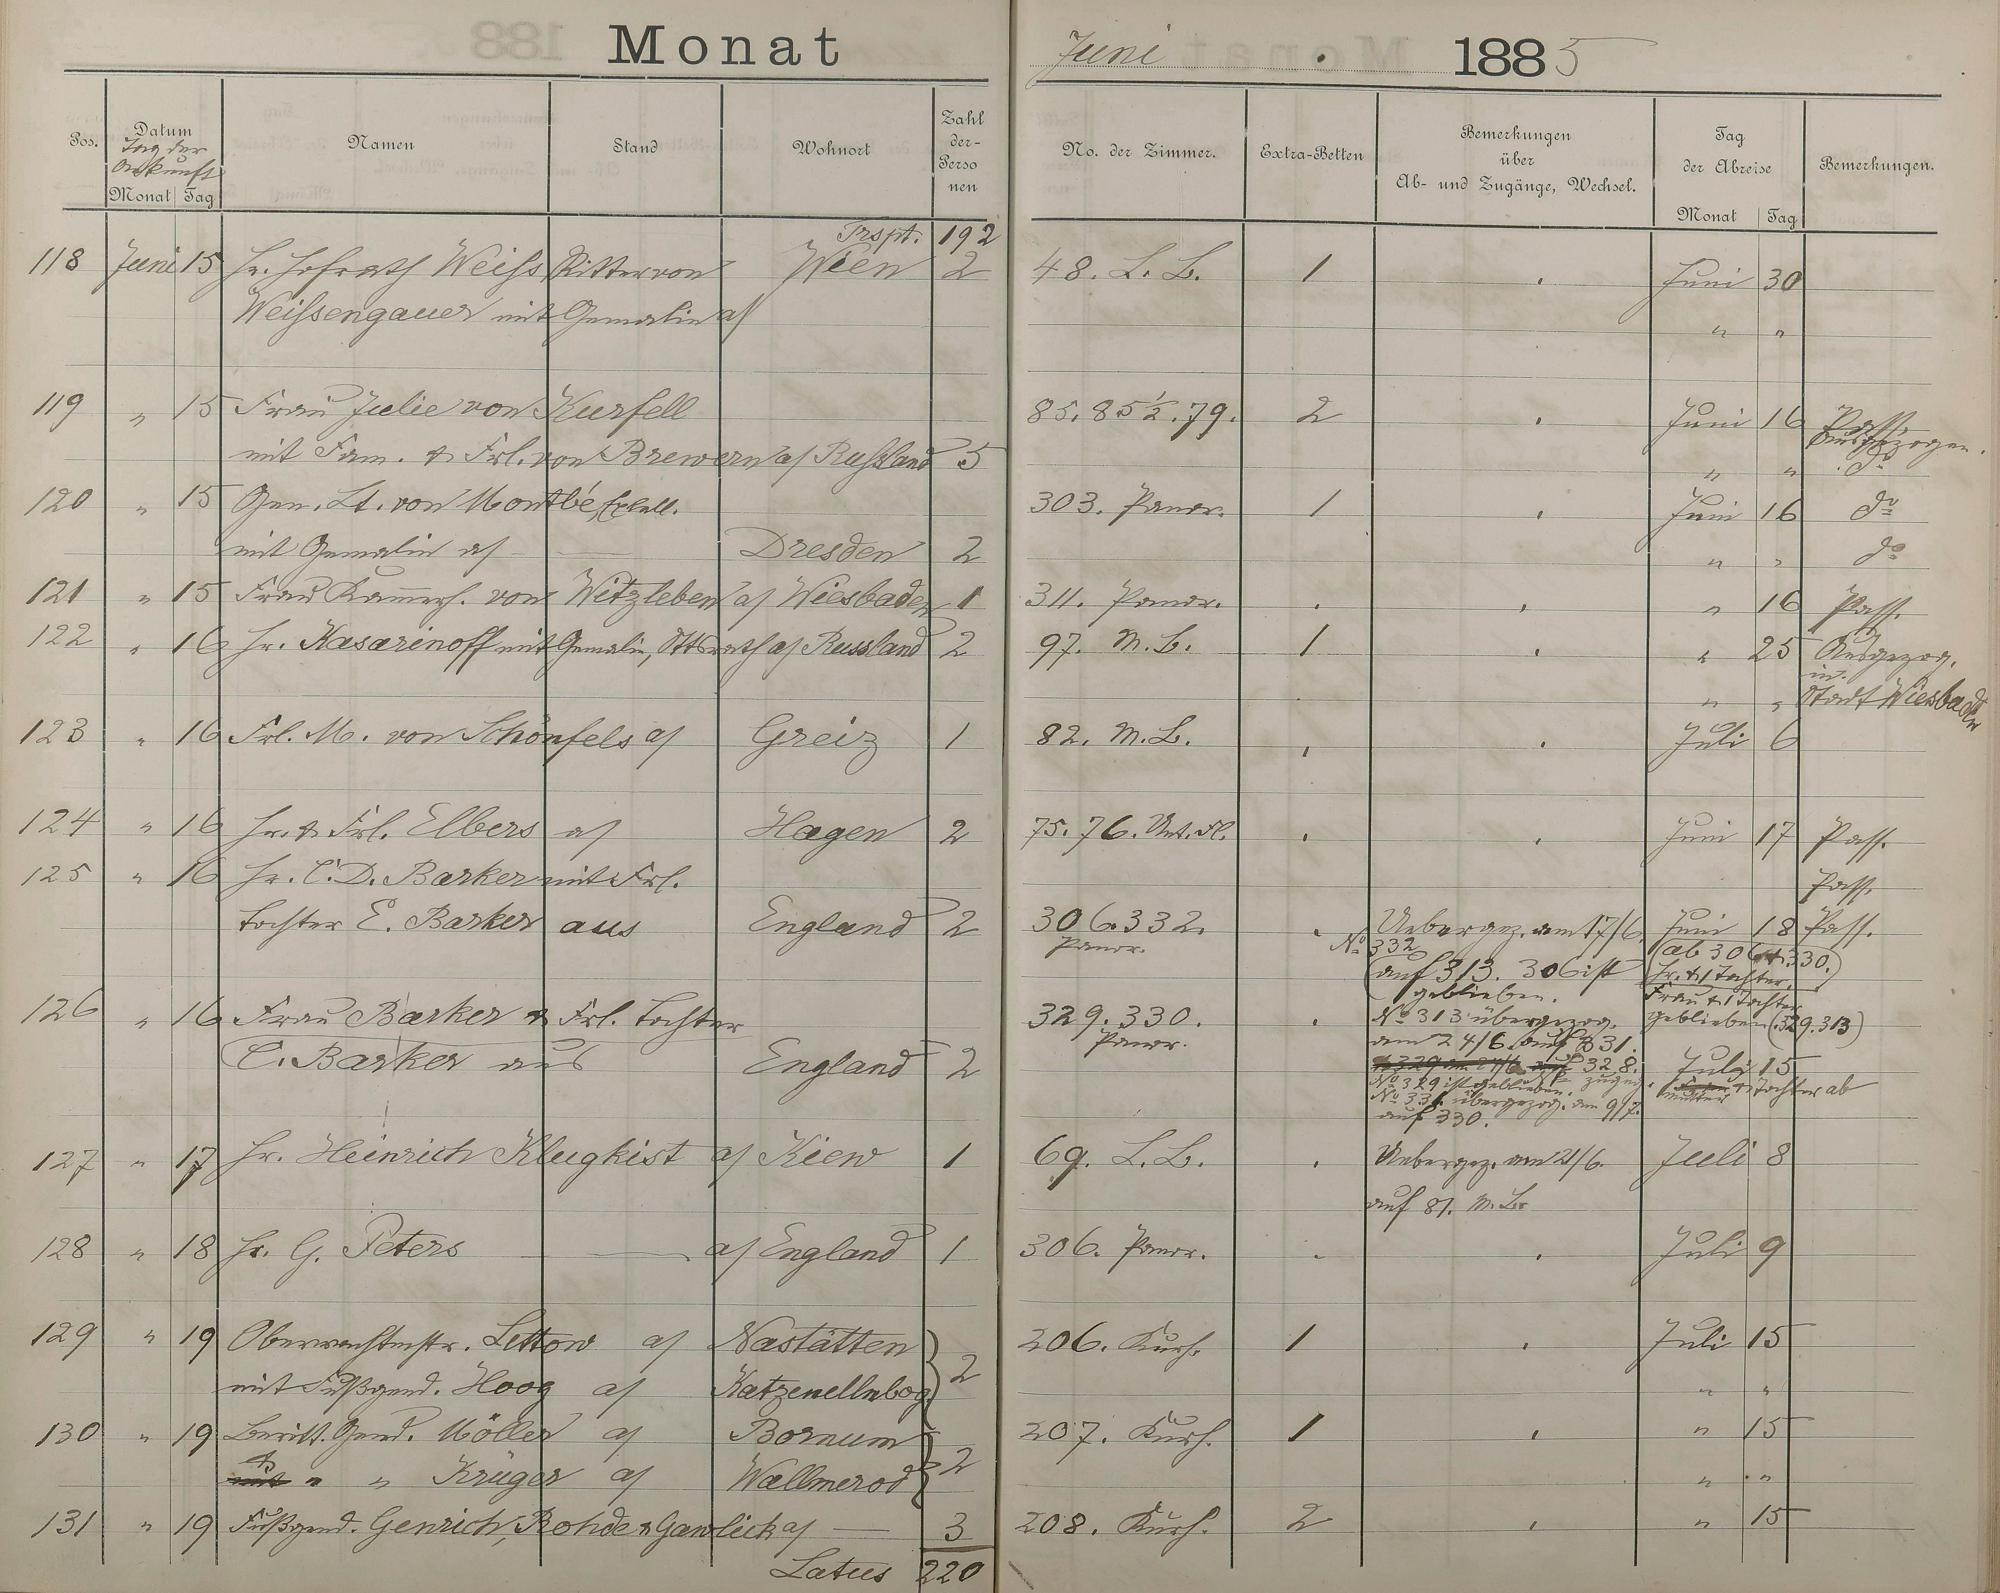 Monat Juni 1885
Pos. Datum Namen Stand Wohnort Zahl No. der Zimmer. Extra-Betten Bemerkungen Tag Bemerkungen.
Tag der der- über der Abreise
Ankunft Perso Ab- und Zugänge, Wechsel.
Monat Tag nen Monat Tag
Trspt. 192
118 Juni 15 Hr. Hofrath Weiss Ritter von Wien 2 48. L. B. 1 Juni 30
Weissengauer mit Gemalin a/ " "
119 " 15 Frau Julie von Kursell 85. 85½. 79. 2 Juni 16 Pass.
ausgezogen.
mit Fam. & Frl. von Brewern a/ Russland 5 " " do
120 " 15 Gen. Lt. von Montbé, Excell. 303. Panor. 1 Juni 16 do
mit Gemalin a/ Dresden 2 " " do
121 " 15 Frau Kammerh. von Witzleben a/ Wiesbaden 1 311. Panor. " 16 Pass.
122 " 16 Hr. Kasarinoff mit Gemalin, a/ Russland 2 97. M. B. 1 " 25 Ausgezog.
in
" " Stadt Wiesbaden
123 " 16 Frl. M. von Schönfels a/ Greiz 1 82. M. B. Juli 6
124 " 16 Hr. & Frl. Elbers a/ Hagen 2 75. 76. Unt. Fl. Juni 17 Pass.
125 " 16 Hr. C. D. Barker mit Frl. Pass.
Tochter E. Barker aus England 2 306. 332. Uebergez. am 17/6. Juni 18 Pass.
Panor. No 332 (ab 306 & 330.)
auf 313. 306 ist Hr. & 1 Tochter.
geblieben. Frau & 1 Tochter
126 " 16 Frau Barker & Frl. Tochter 329. 330. No 313 übergezog. geblieben (329. 313)
Panor. am 24/6. auf 331.
C. Barker aus England 2 328. Juli 15
No 329 ist geblieben. Mutter & Tochter ab
No 331. übergezog. am 9/7.
auf 330.
127 " 17 Hr. Heinrich Klugkist a/ Kiew 1 69. L. B. Uebergez. am 21/6. Juli 8
auf 81. M. B.
128 " 18 Hr. G. Peters a/ England 1 306. Panor. Juli 9
129 " 19 Oberwachtmstr. Lettow a/ Nastätten 206. Kurh. 1 Juli 15
mit Fußgend. Hoog a/ Katzenellnbog. 2 " "
130 " 19 Beritt. Gend. Möller a/ Bornum 207. Kurh. 1 " 15
& " " Krüger a/ Wallmerod 2 " "
131 " 19 Fußgend. Genrich, Rohde & Gawlick a/ — 3 208. Kurh. 2 " 15
Latus 220